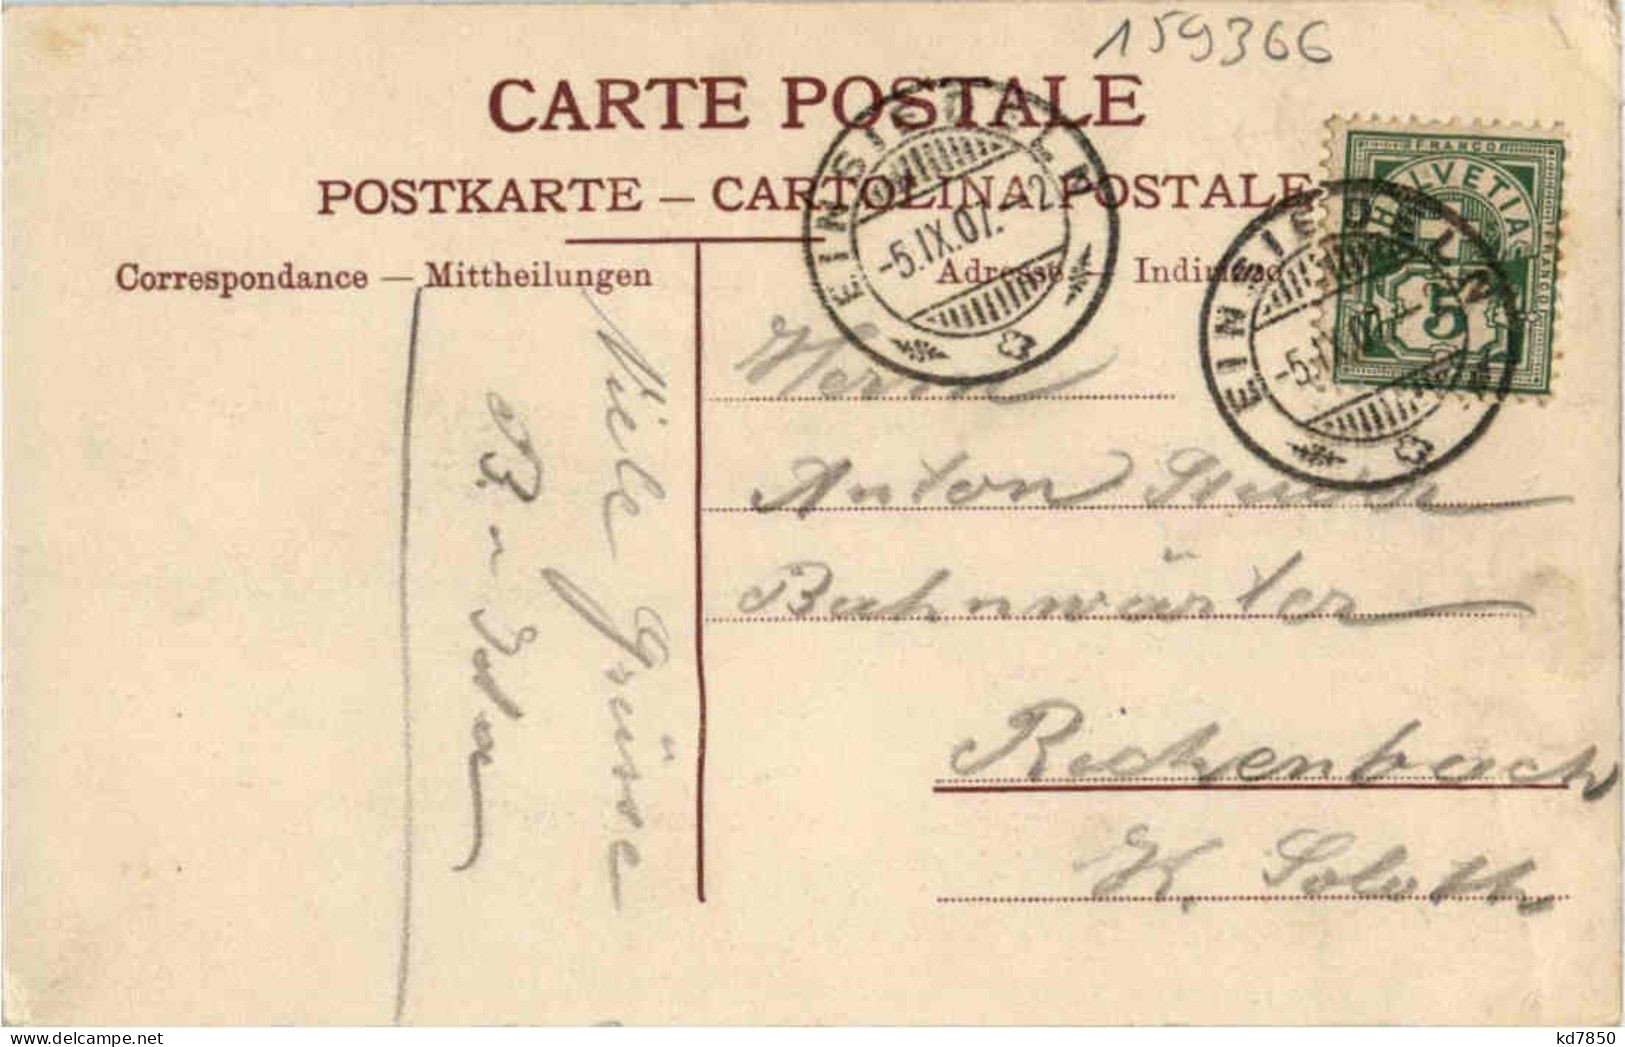 159366
CARTE POSTALE
POSTKARTE — CARTOLINA POSTALE
Correspondance — Mittheilungen
Adresse — Indirizzo
EINSIEDELN
-5.IX.07.-
EINSIEDELN
-5.IX.07.-
FRANCO
HELVETIA
FRANCO
5
Herrn
Anton
Bahnwärter
Richenbach
K. Soloth.
Viele Grüsse
B.
kd7850